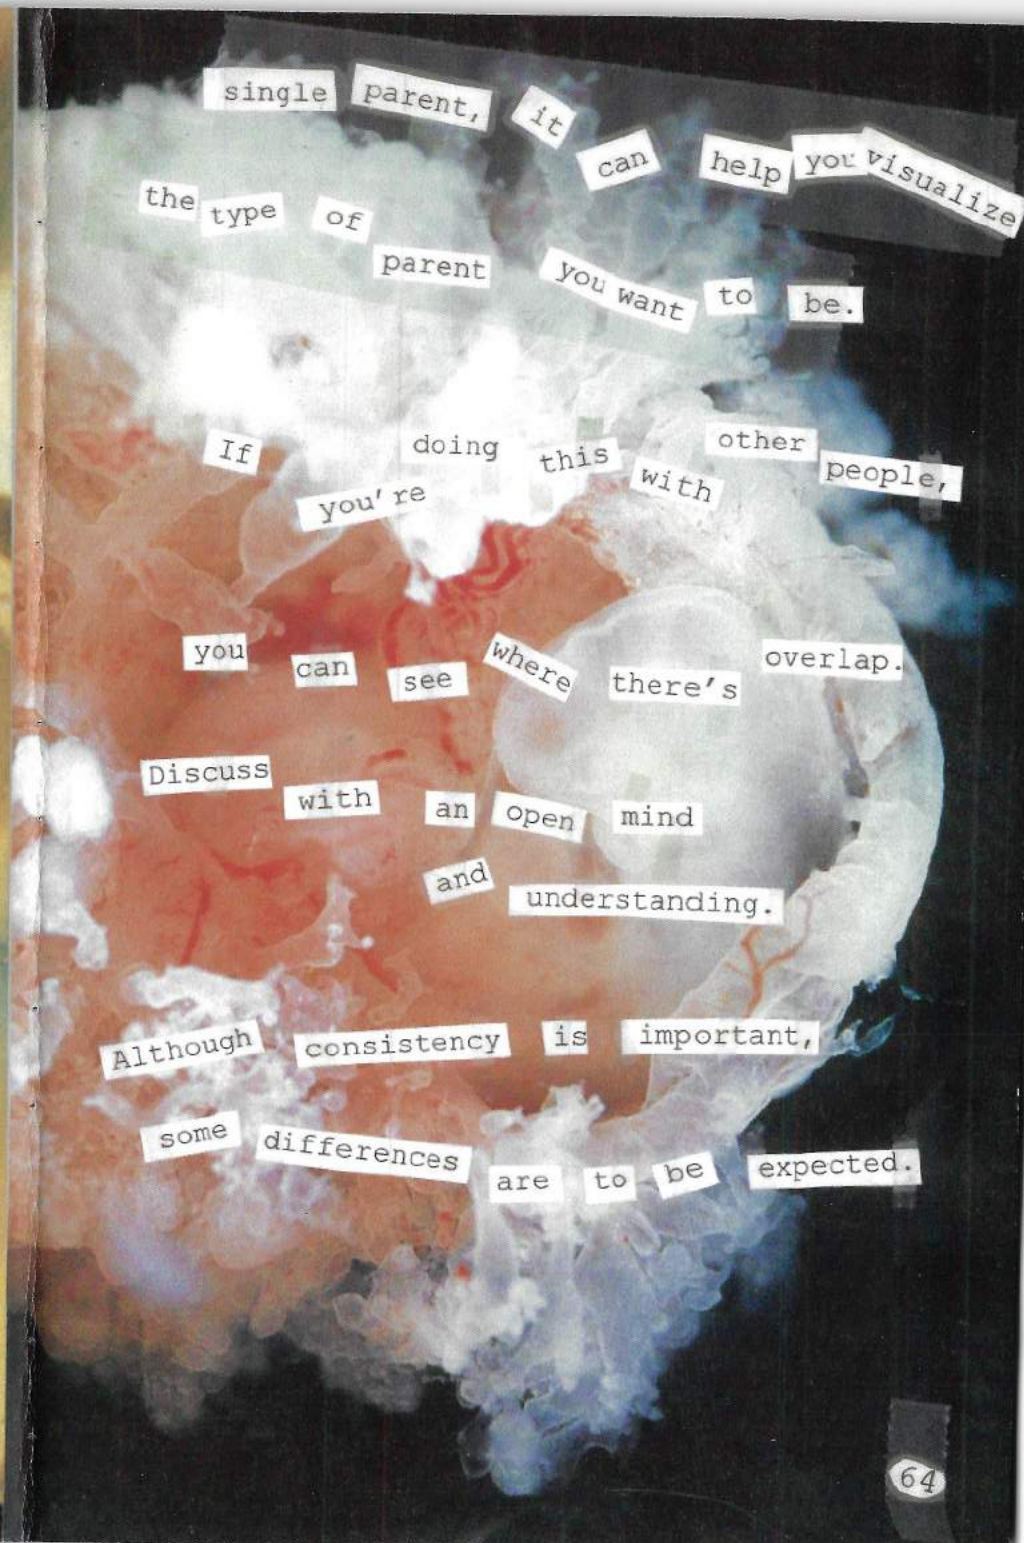 single parent, it can help you visualize
the type of parent you want to be.
If you're doing this with other people,
you can see where there's overlap.
Discuss with an open mind
and understanding.
Although consistency is important,
some differences are to be expected.
64